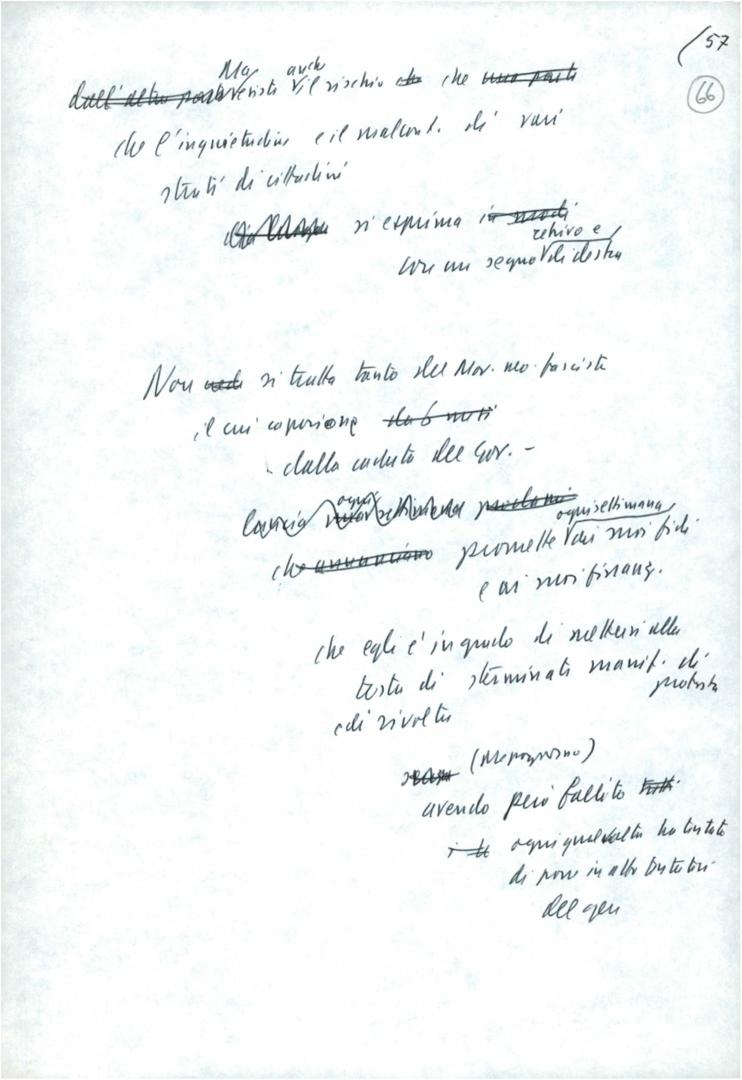 57
66
Ma anche
dall'altra parte esiste il rischio che che una parte
che l'inquietudine e il malcont. di vari
strati di cittadini
si esprima in modi
retrivo e
con un segno di destra
Non si tratta tanto del Mov. neo-fascista
il cui caporione da 6 mesi
dalla caduta del Gov. -
ogni settimana proclami
ogni settimana
che annunciano promette ai suoi fidi
e ai suoi finanz.
che egli è in grado di mettersi alla
testa di sterminati manif. di
protesta
e di rivolta
avendo però fallito tutti
ogni qualvolta ha tentato
di porre in atto tentativi
del gen